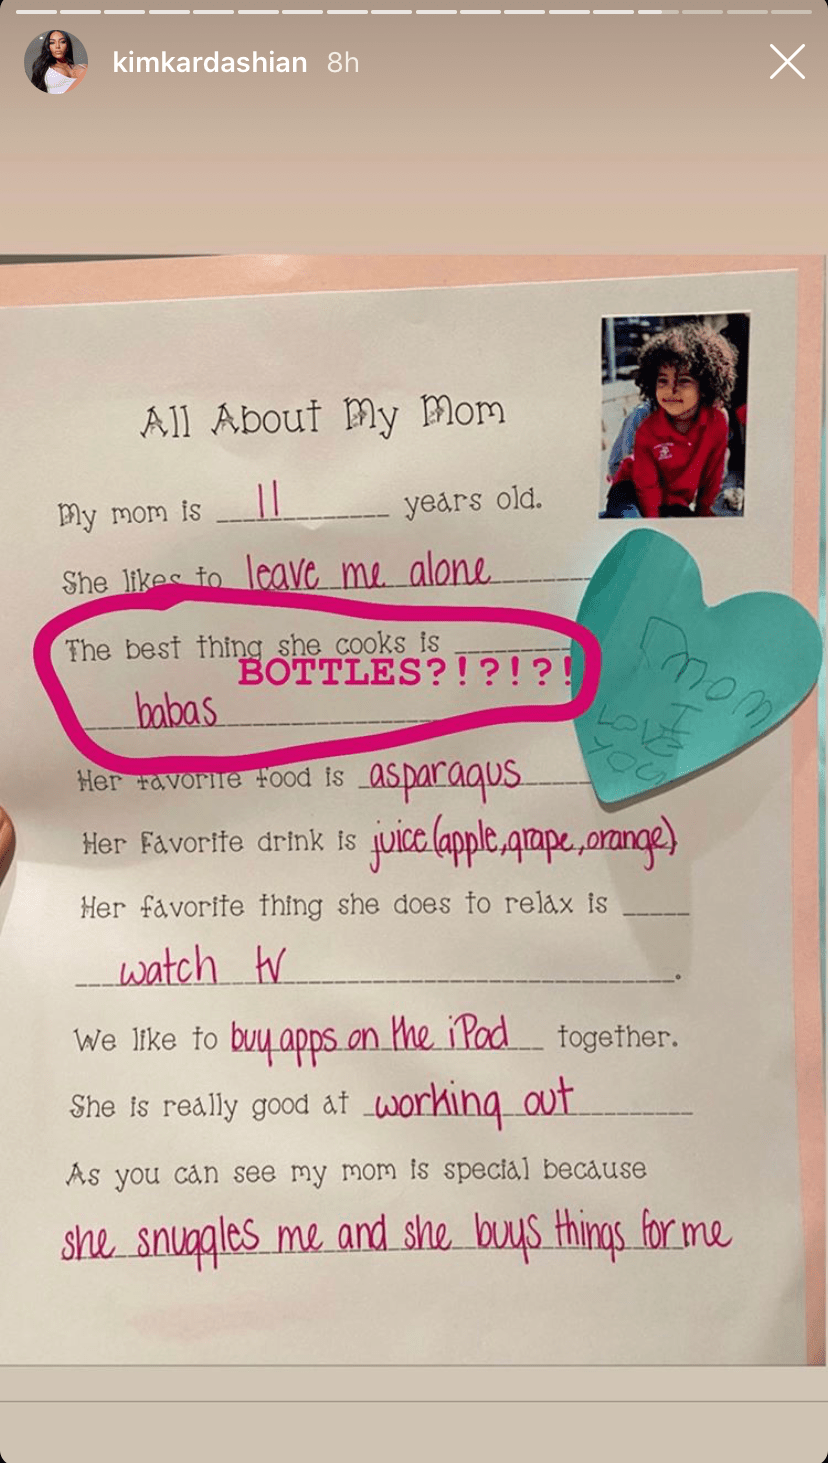 kimkardashian 8h
All About My Mom
My mom is 11 years old.
She likes to leave me alone
The best thing she cooks is
BOTTLES?!?!?!
babas
Her favorite food is asparagus
Her Favorite drink is juice (apple, grape, orange)
Her favorite thing she does to relax is
watch tv.
We like to buy apps on the iPad together.
She is really good at working out
As you can see my mom is special because
she snuggles me and she buys things for me
mom
I
LOVE
YOU